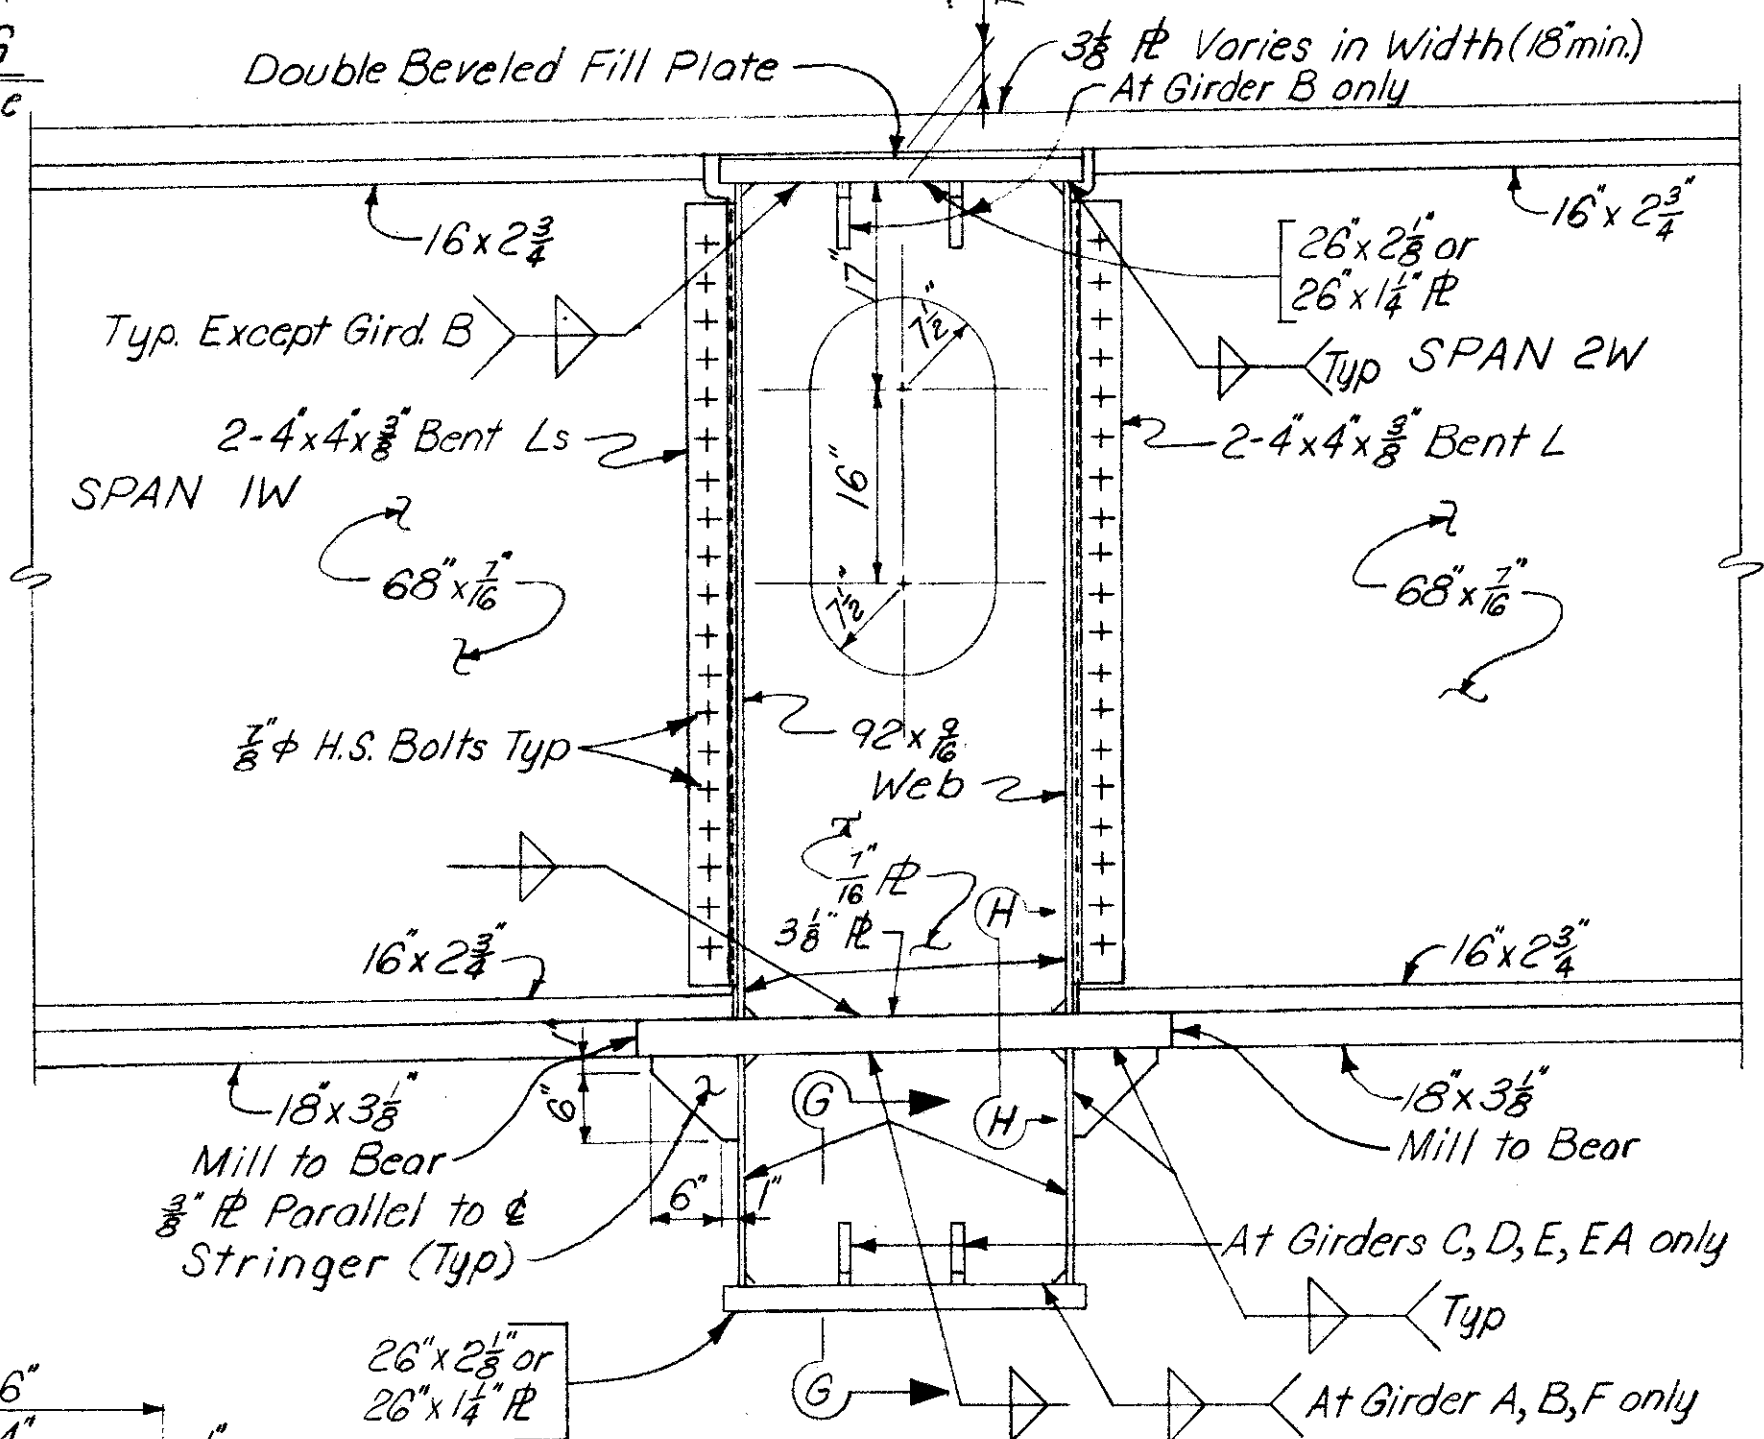 Double Beveled Fill Plate
3 1/8 ℞ Varies in Width (18" min.)
At Girder B only
16 x 2 3/4
16" x 2 3/4"
17"
7 1/2"
26" x 2 1/8" or
26" x 1 1/4" ℞
Typ. Except Gird. B
Typ
SPAN 2W
2-4" x 4" x 3/8" Bent Ls
2-4" x 4" x 3/8" Bent L
16"
SPAN 1W
68" x 7/16"
68" x 7/16"
7 1/2"
7/8" φ H.S. Bolts Typ
92 x 9/16
Web
7/16" ℞
3 1/8" ℞
H
16" x 2 3/4"
16" x 2 3/4"
18" x 3 1/8"
6"
G
H
18" x 3 1/8"
Mill to Bear
Mill to Bear
3/8" ℞ Parallel to ℄
Stringer (Typ)
6"
1"
At Girders C, D, E, EA only
Typ
26" x 2 1/8" or
26" x 1 1/4" ℞
G
At Girder A, B, F only
6"
4"
1"